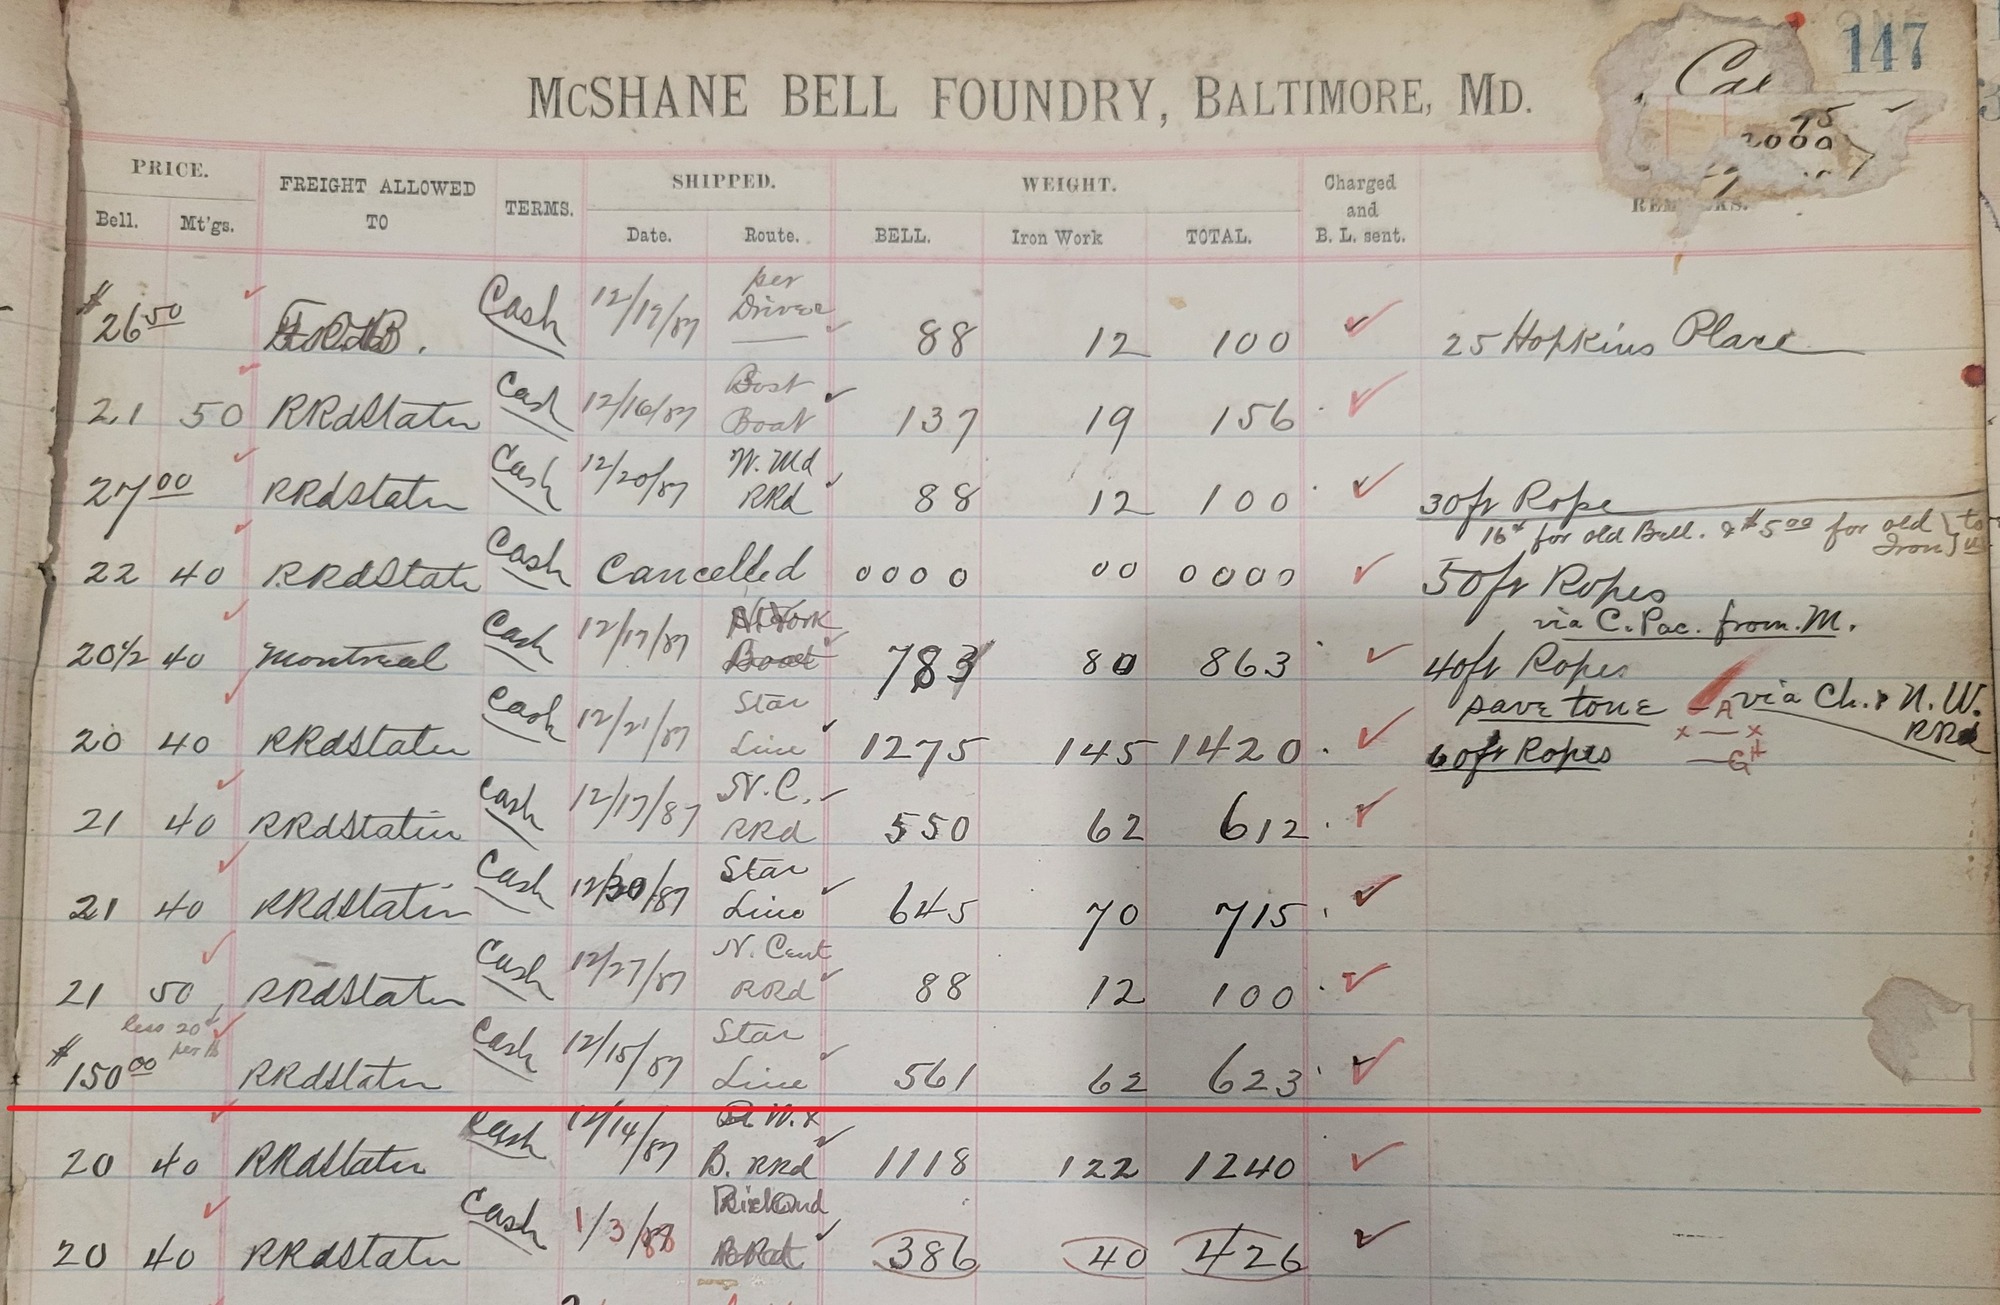 147
Cal
75
2000
McSHANE BELL FOUNDRY, BALTIMORE, MD.
PRICE. FREIGHT ALLOWED TO TERMS. SHIPPED. WEIGHT. Charged and B. L. sent.
Bell. Mt'gs. Date. Route. BELL. Iron Work TOTAL.
$26 50 Cash 12/19/87 per Driver 88 12 100 25 Hopkins Place
21 50 RRdStatn Cash 12/16/87 Bost Boat 137 19 156
27 00 RRdStatn Cash 12/20/87 W. Md RRd 88 12 100 30ft Rope
16¢ for old Bell. & $5 00 for old Iron } to us
22 40 RRdStatn Cash Cancelled 0000 00 0000 50ft Ropes
via C. Pac. from M.
20½ 40 Montreal Cash 12/17/87 N. York Boat 783 80 863 40ft Ropes
save tone – A via Ch. & N. W. RRd
x — x
20 40 RRdStatn Cash 12/21/87 Star Line 1275 145 1420 60ft Ropes — G#
21 40 RRdStatin Cash 12/17/87 N. C. RRd 550 62 612
21 40 RRdStatin Cash 12/30/87 Star Line 645 70 715
21 50 RRdStatn Cash 12/27/87 N. Cent RRd 88 12 100
less 20¢ per lb
$150 00 RRdStatn Cash 12/15/87 Star Line 561 62 623
20 40 RRdStatn Cash 12/14/87 B. RRd 1118 122 1240
20 40 RRdStatn Cash 1/3/88 386 40 426